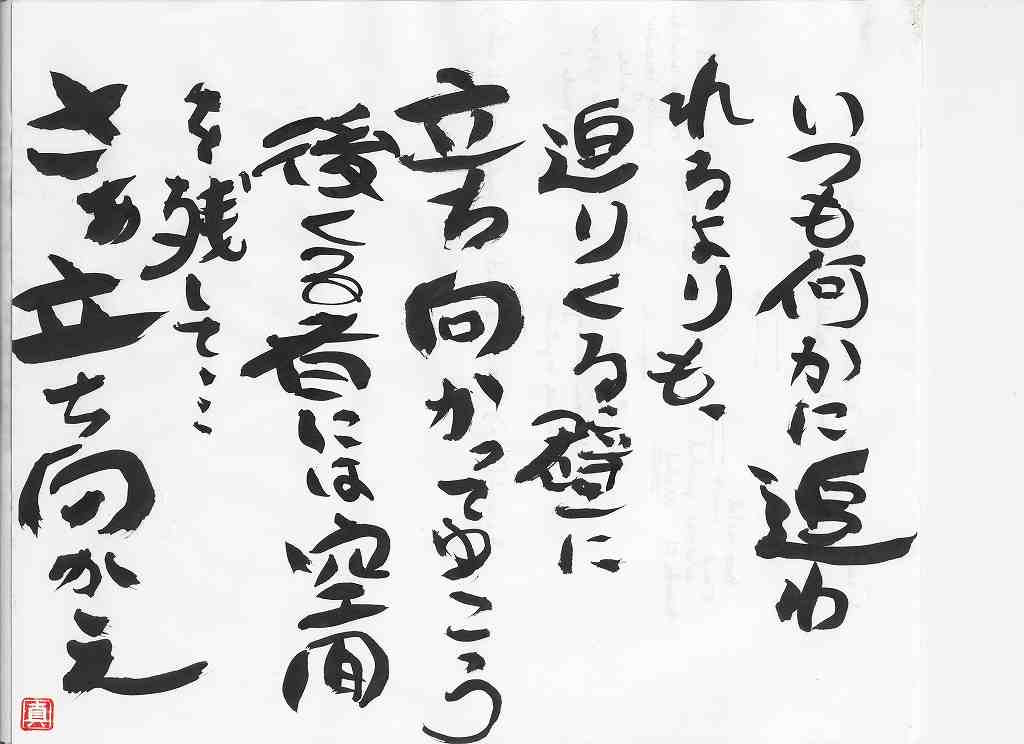 いつも何かに追わ
れるよりも、
迫りくる壁に
立ち向かってゆこう
後くる者には空間
を残して…
さあ立ち向かえ
真